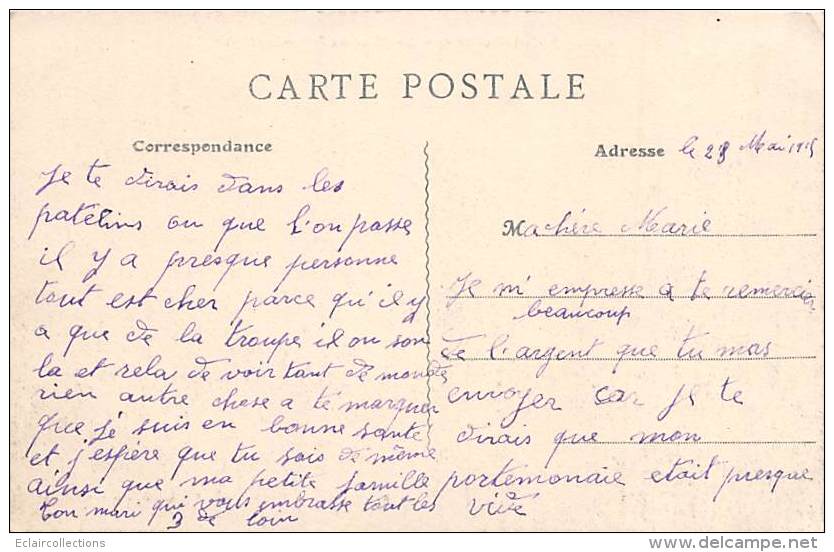 CARTE POSTALE
Correspondance
Adresse le 28 Mai 1915
Ma chère Marie
Je m'empresse a te remercier
beaucoup
de l'argent que tu mas
envoyer car je te
dirais que mon
portemonaie etait presque
vide
Je te dirais dans les
patelins ou que l'on passe
il y a presque personne
tout est cher parce qu'il y
a que de la troupe il on son
la et rela de voir tant de monde
rien autre chose a te marquer
que je suis en bonne santé
et j'espère que tu sois de même
ainsi que ma petite famille
ton mari qui vous embrasse tout les
3 de loin
Eclaircollections